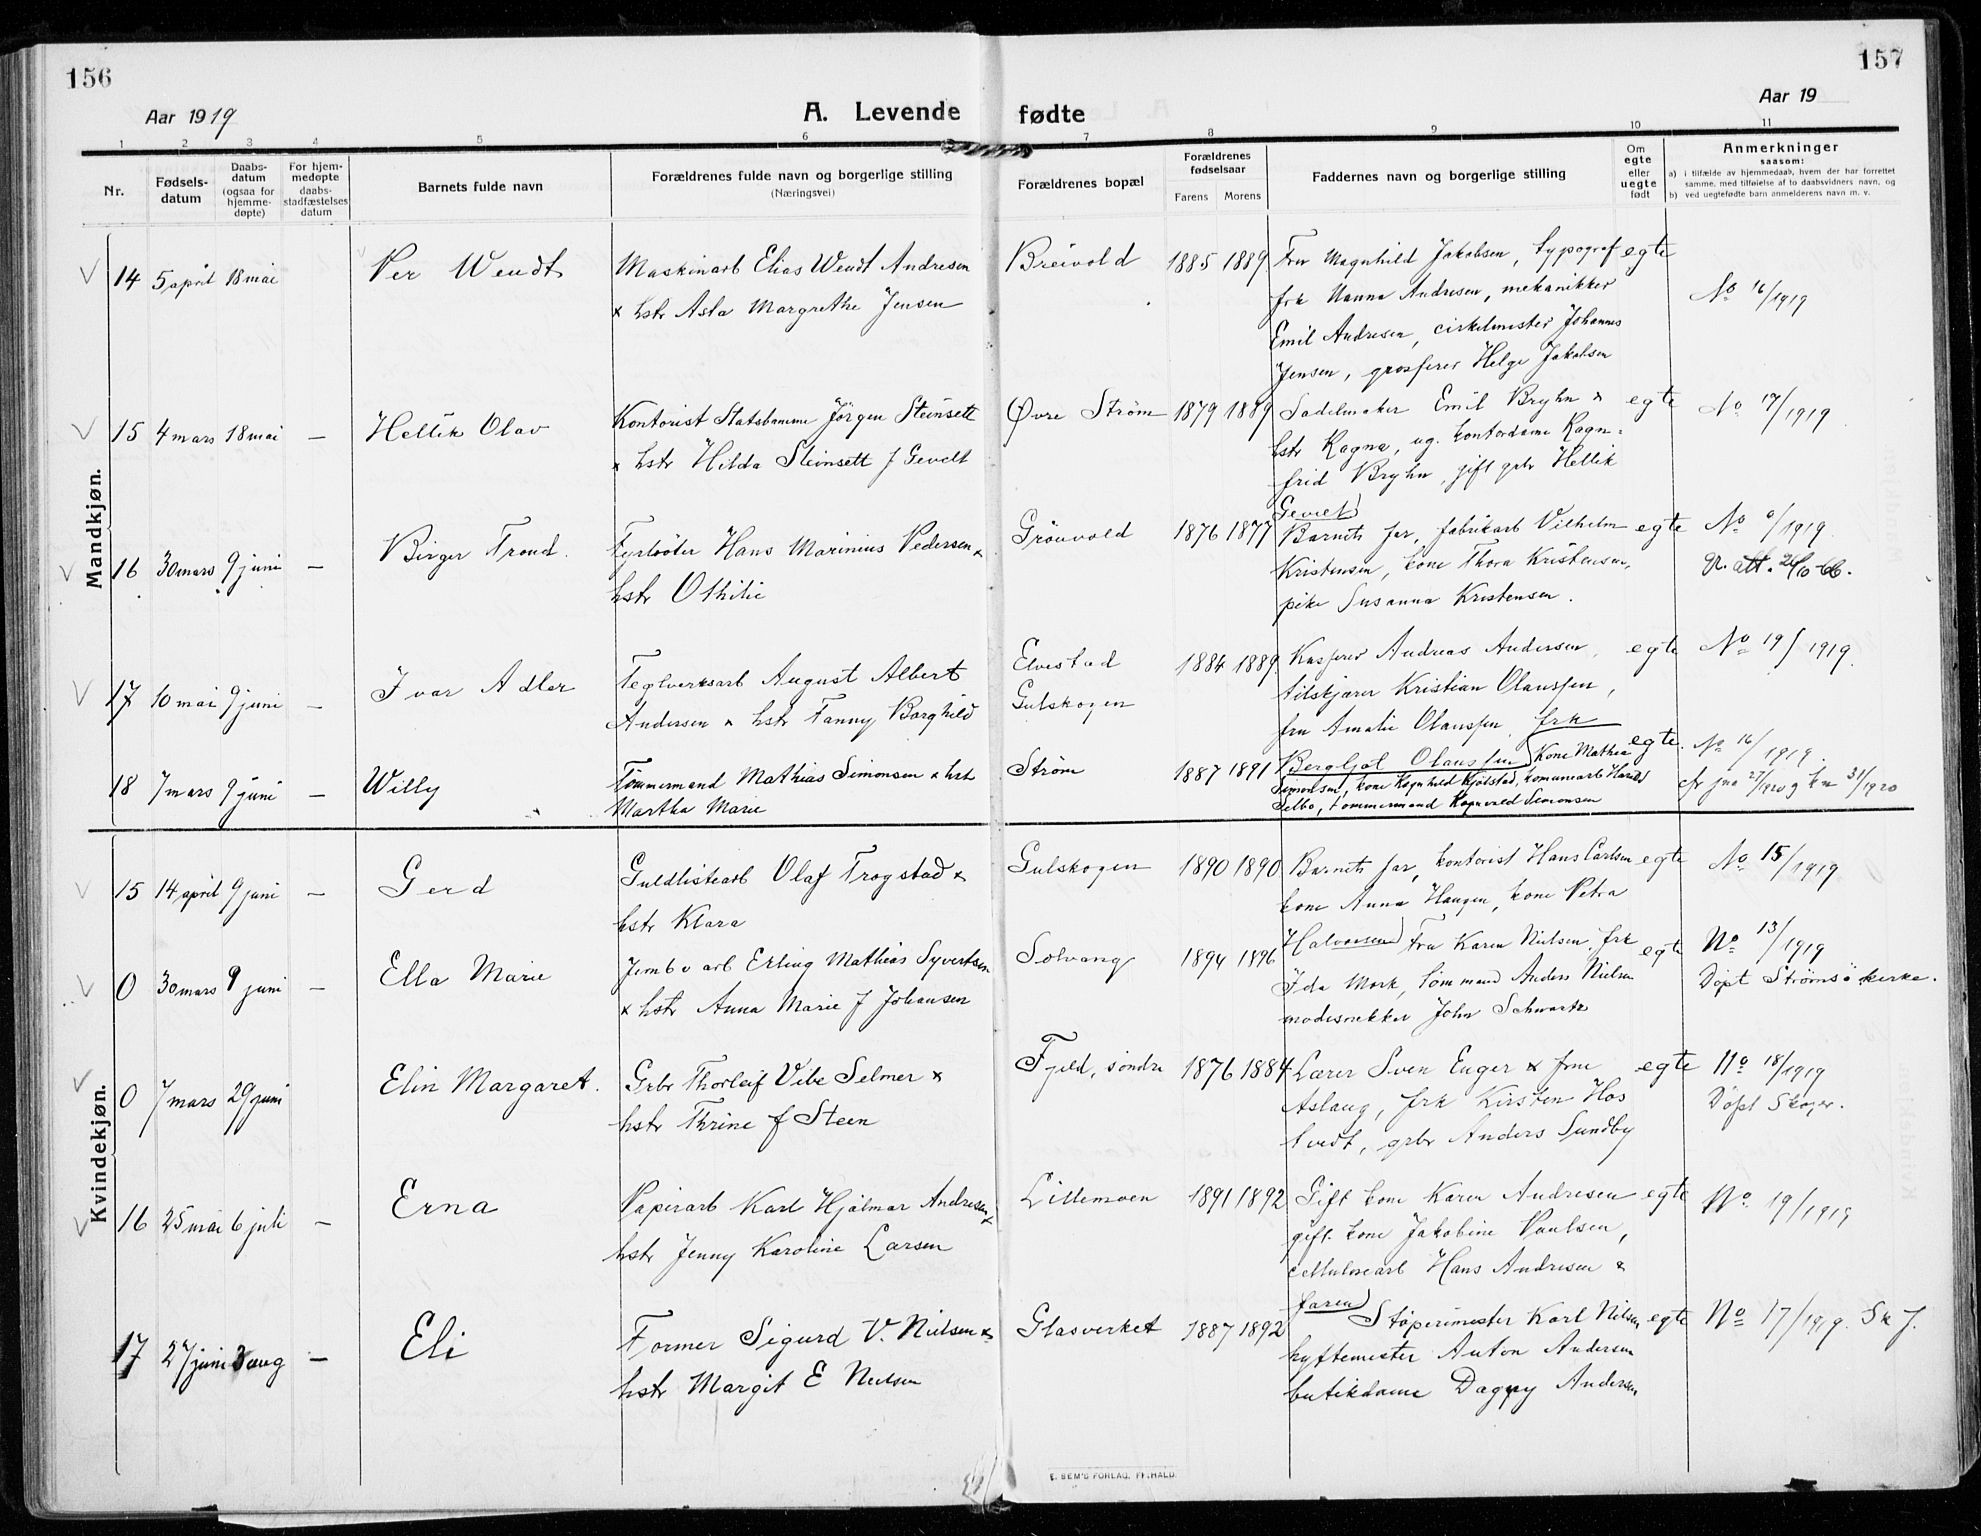 156
157
Aar 1919
A. Levende fødte
Aar 19
1 2 3 4 5 6 7 8 9 10 11
Nr.
Fødsels-
datum
Daabs-
datum
(ogsaa for
hjemme-
døpte)
For hjem-
medøpte
daabs-
stadfæstelses
datum
Barnets fulde navn
Forældrenes fulde navn og borgerlige stilling
(Næringsvei)
Forældrenes bopæl
Forældrenes
fødselsaar
Farens Morens
Faddernes navn og borgerlige stilling
Om
egte
eller
uegte
født
Anmerkninger
saasom:
a) i tilfælde av hjemmedaab, hvem der har forrettet
samme, med tilføielse af to daabsvidners navn, og
b) ved uegtefødte barn anmelderens navn m. v.
Mandkjøn.
14 5 april 18 mai Per Wendt
Maskinarb Elias Wendt Andresen
x hstr Asta Margrethe Jensen
Breivold 1885 1889
Fru Magnhild Jakobsen, typograf
frk Nanna Andresen, mekanikker
Emil Andresen, cirkelmester Johannes
Jensen, grosserer Helge Jakobsen
egte
No 16/1919
15 4 mars 18 mai – Hellik Olav
Kontorist Statsbanerne Jörgen Steinsett
x hstr Hilda Steinsett f Gevelt
Øvre Strøm 1879 1889
Sadelmaker Emil Bryhn x
hstr Ragna, ug. kontordame Ragn=
frid Bryhn, gift grbr Hellik
Gevelt
egte
No 17/1919
16 30 mars 9 juni – Birger Trond.
Fyrbøter Hans Marinius Pedersen x
hstr Othilie
Grönvold 1876 1877
Barnets far, fabrikarb Vilhelm
Kristensen, kone Thora Kristensen,
pike Susanna Kristensen.
egte
No 0/1919
N. att. 26/10-66.
17 10 mai 9 juni – Ivar Adler
Teglverksarb August Albert
Andersen x hstr Fanny Borghild
Elvestad
Gulskogen
1884 1889
Kasserer Andreas Andersen,
tilskjærer Kristian Olaussen,
fru Amalie Olaussen, frk
Bergljot Olaussen
egte
No 19/1919.
18 7 mars 9 juni – Willy
Tömmermand Mathias Simonsen x hst
Martha Marie
Strøm 1887 1891
Kone Mathea
Simonsen, kone Ragnhild Kjölstad, kommunearb Harald
Selbo, tømmermand Ragnvald Simonsen
egte.
No 16/1919.
27/1920 31/1920
Kvindekjøn.
15 14 april 9 juni – Gerd
Guldlistearb Olaf Trogstad x
hstr Klara
Gulskogen 1890 1890
Barnets far, kontorist Hans Carlsen
kone Anna Haugen, kone Petra
Halvorsen
egte
No 15/1919
0 30 mars 9 juni – Ella Marie
Jernbv arb Erling Mathias Syvertsen
x hstr Anna Marie f Johansen
Solvang 1894 1896
Fru Karen Nielsen, frk
Ida Mork, tömmerm Anders Nielsen
modelsnekker John Schwartz
egte
No 13/1919
Döpt Strömsö kirke.
0 7 mars 29 juni Elin Margaret.
Grbr Thorleif Vibe Selmer x
hstr Thrine f Steen
Fjeld, söndre 1876 1884
Lærer Sven Enger x frue
Aslaug, frk Kirsten Hos
tvedt, grbr Anders Sundby
egte
No 18/1919
Döpt Skoger.
16 25 mai 6 juli – Erna
Papirarb Karl Hjalmar Andresen x
hstr Jenny Karoline Larsen
Lillemoen 1891 1892
Gift kone Karen Andresen
gift. kone Jakobine Paulsen,
cellulosearb Hans Andresen &
faren
egte
No. 19/1919
17 27 juni 3 aug – Eli
Former Sigurd V. Nielsen x
hstr Margit E Nielsen
Glasverket 1887 1892
Støperimester Karl Nielsen
hyttemester Anton Andersen
butikdame Dagny Andersen
egte
No 17/1919. Sk J.
E. SEM'S FORLAG, FR.HALD.